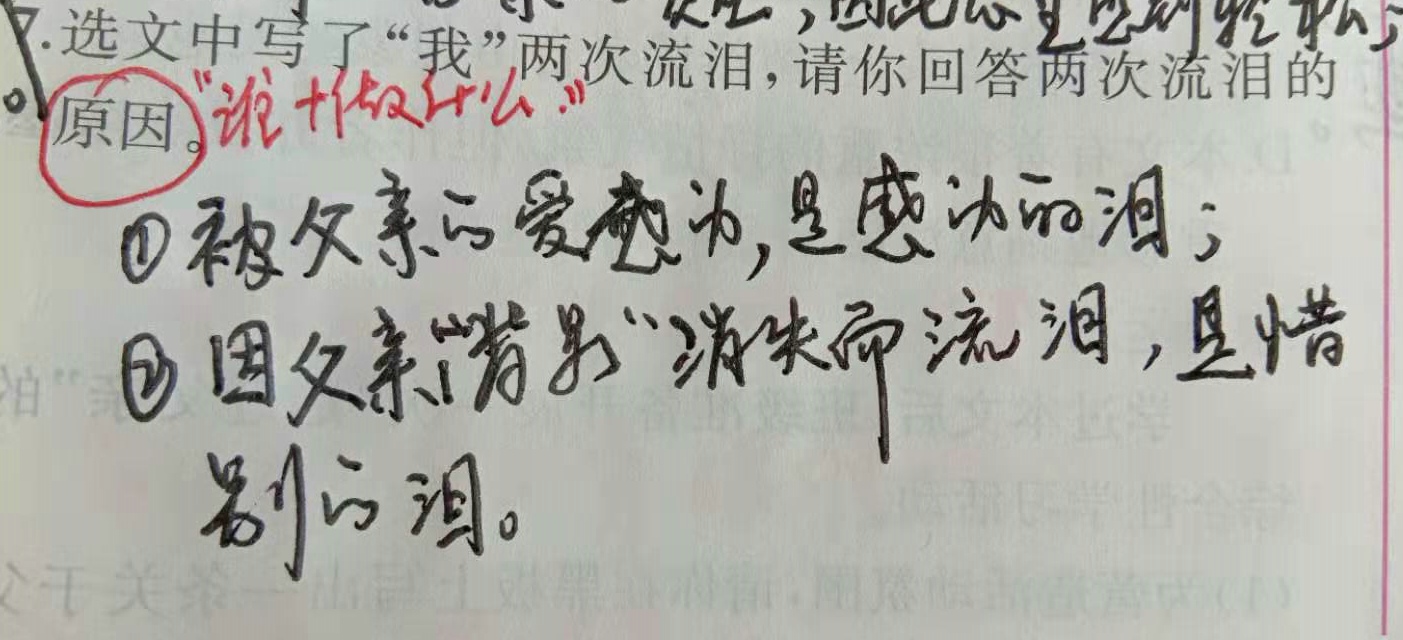 7.选文中写了“我”两次流泪，请你回答两次流泪的
原因。“谁+做什么.”
①被父亲的爱感动，是感动的泪；
②因父亲“背影”消失而流泪，是惜
别的泪。